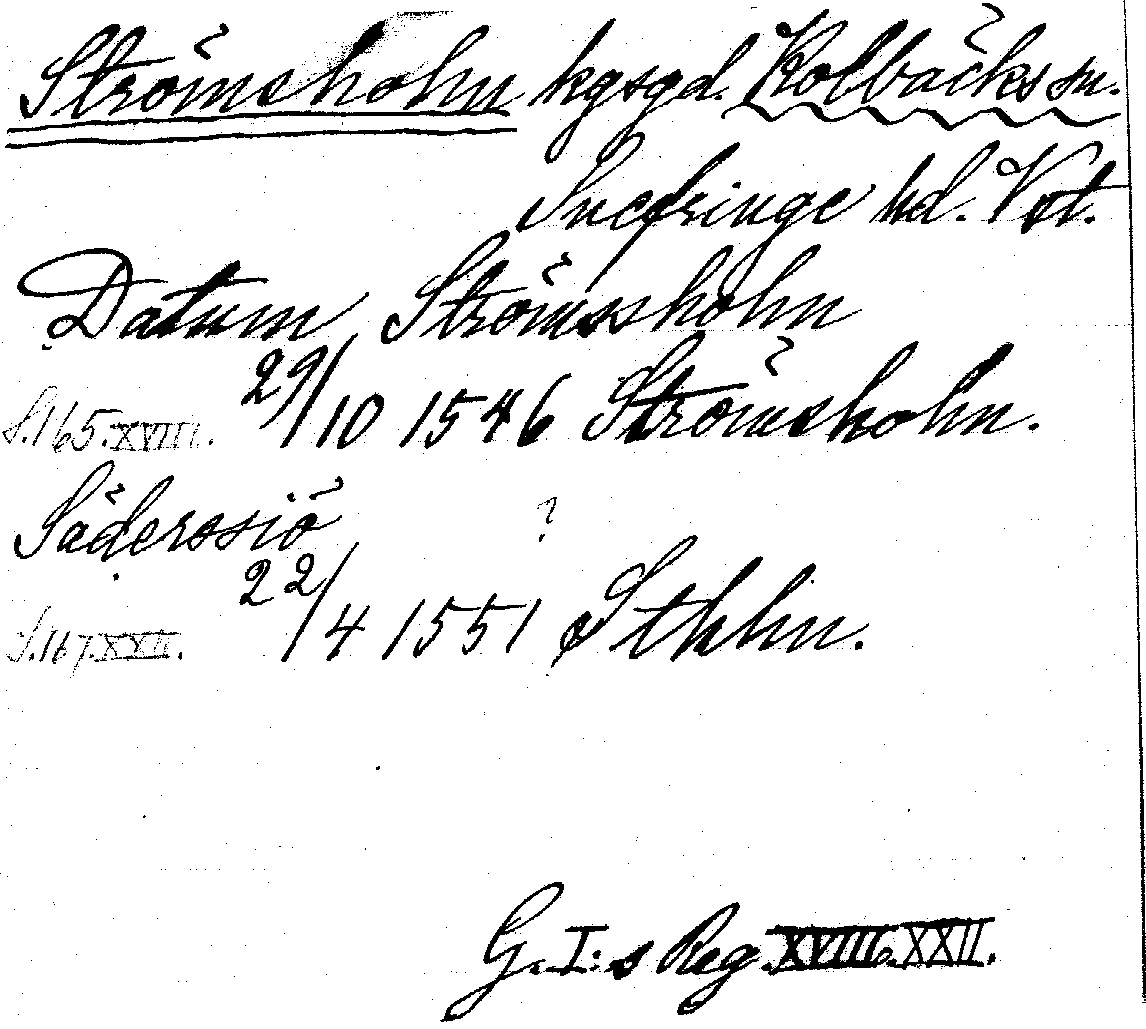 Strömsholm kgsgd. Kolbäcks sn.
Snefringe hd. Vst.
Datum Strömssholm
S.165.XVIII. 29/10 1546 Strömsholm.
Söderssiö ?
S.167.XXII. 22/4 1551 Sthlm.
G.I:s Reg.XVIII.XXII.